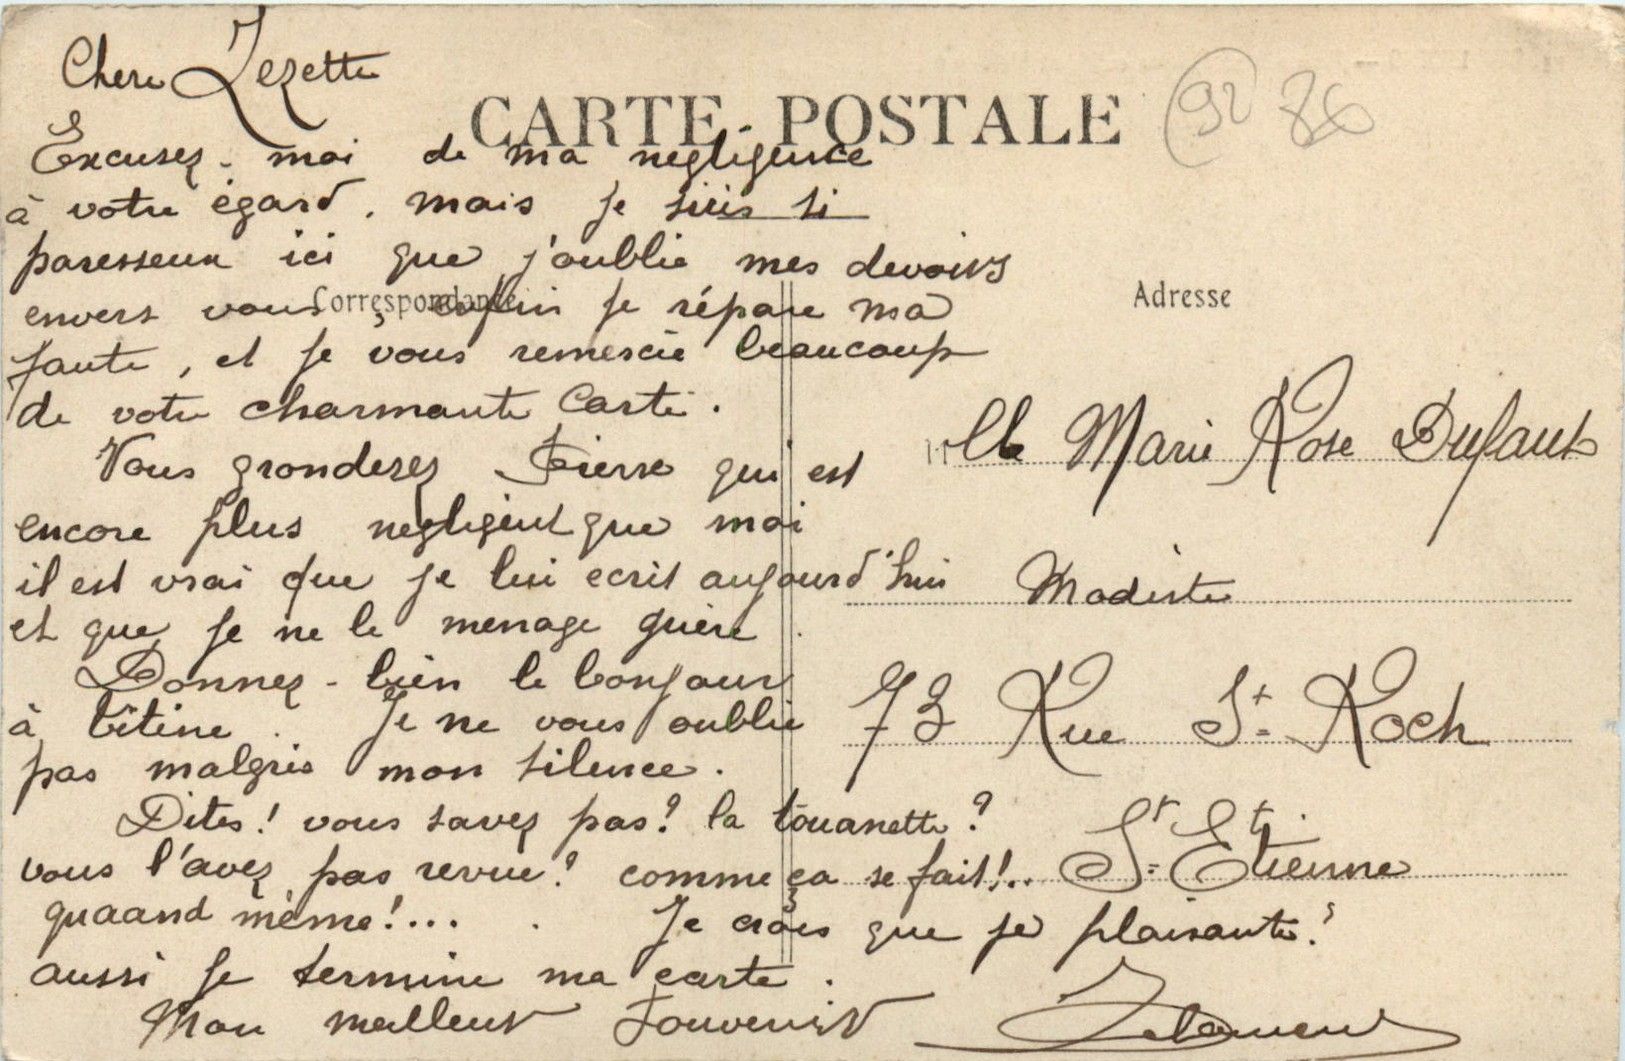 Chere Zezette
CARTE POSTALE
92 86
Excusez-moi de ma negligence
à votre égard, mais je suis si
paresseux ici que j'oublie mes devoirs
envers vous, enfin je répare ma
Correspondance
Adresse
faute, et je vous remercie beaucoup
de votre charmante Carte.
Vous gronderez Pierre qui est
encore plus negligent que moi
il est vrai que je lui ecrit aujourd'hui
et que je ne le menage guère.
Donnez-bien le bonjour
à Titine. Je ne vous oublie
pas malgrès mon silence.
Dites! vous savez pas? la touanette?
vous l'avez pas revue? comme ça se fait!..
quaand même!... Je crois que je plaisante!
aussi je termine ma carte.
Mon meilleur Souvenir
Mlle Marie Rose Dufaut
Modiste
73 Rue St Roch
St Etienne